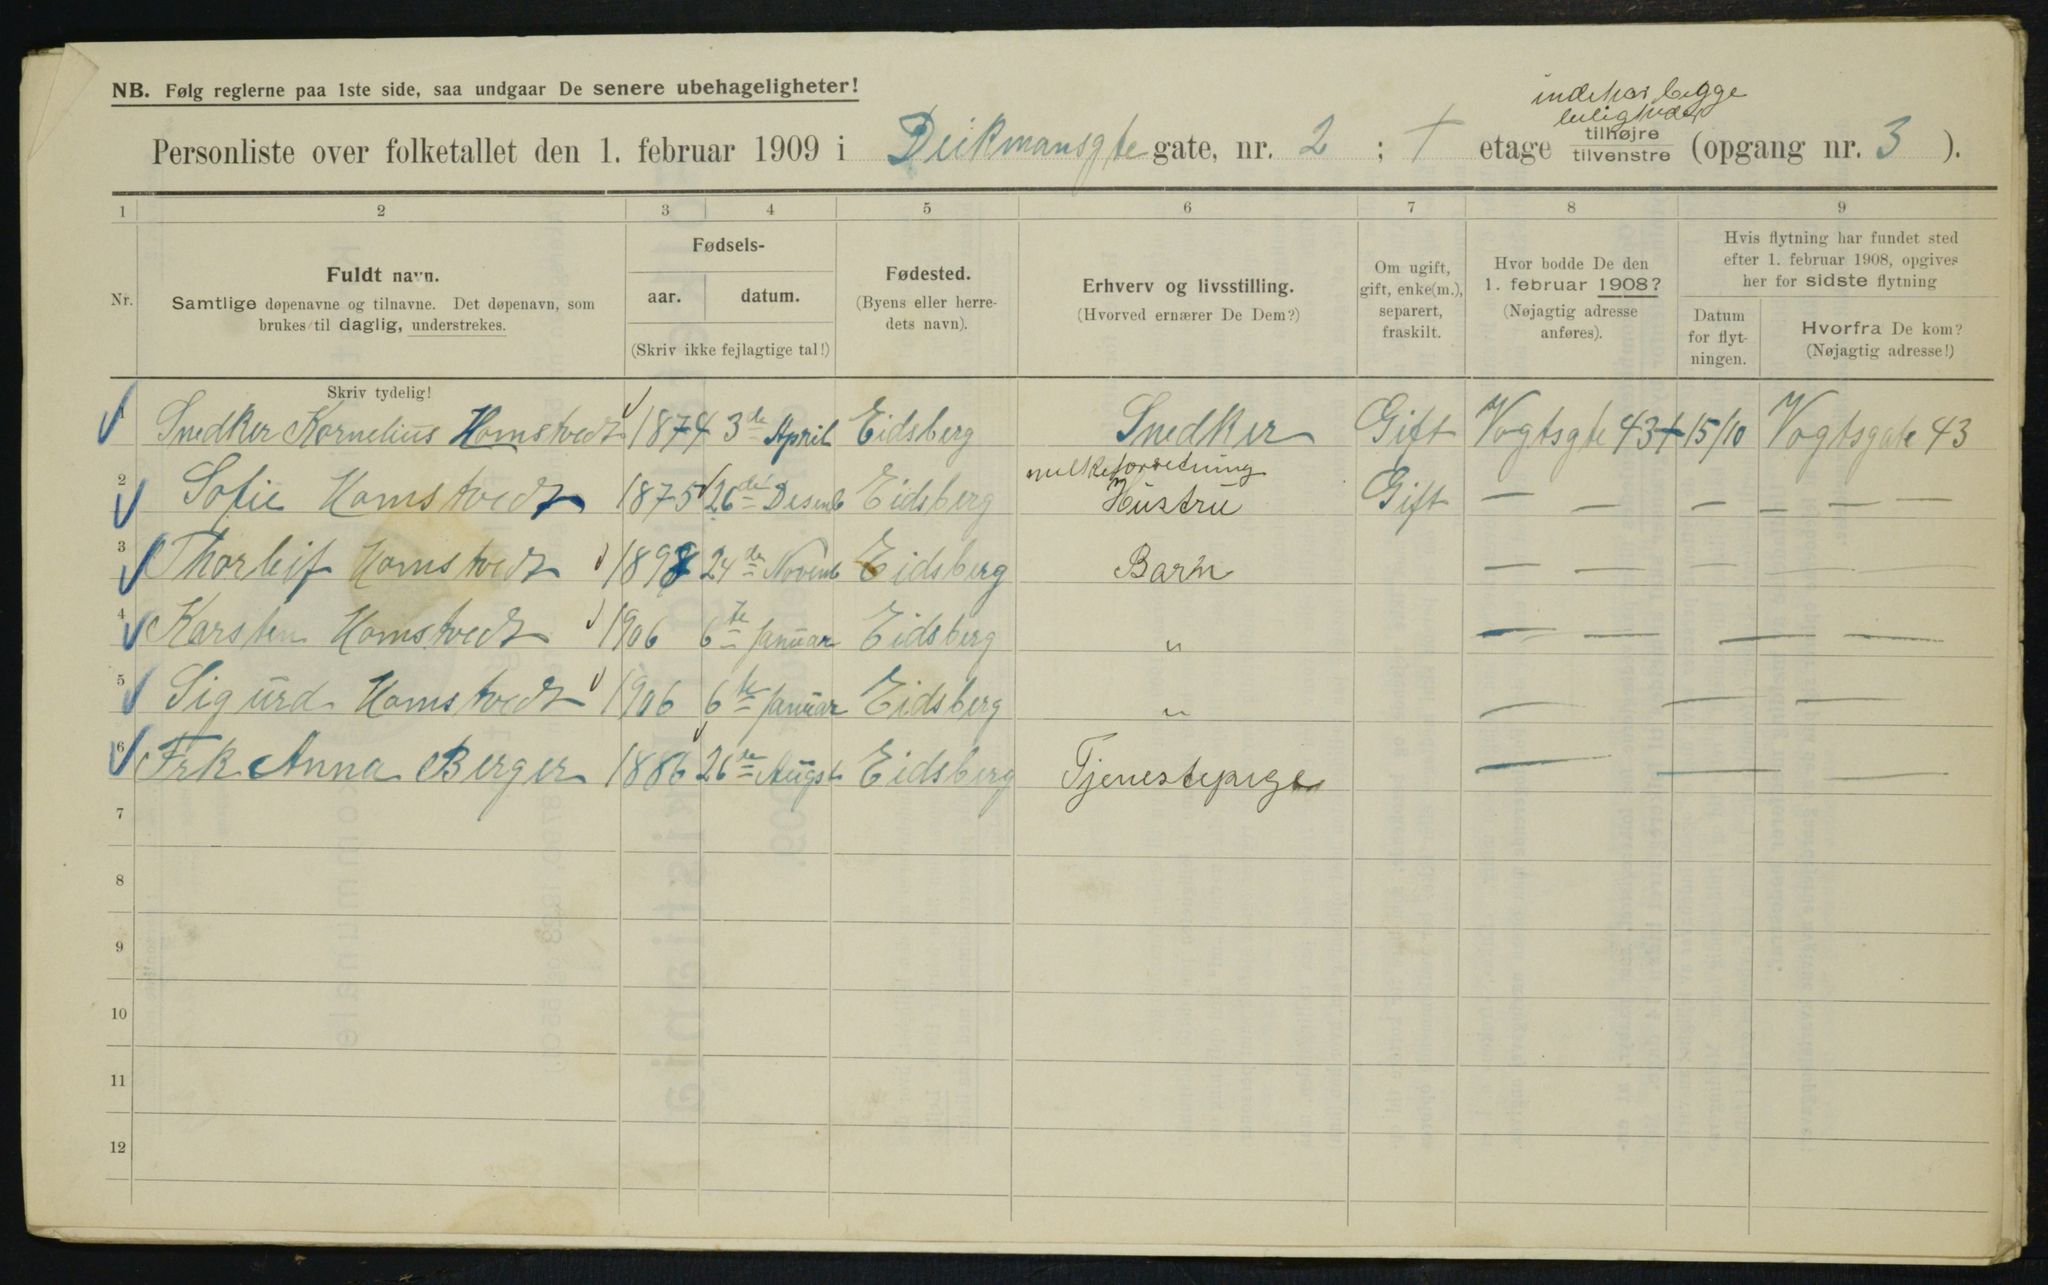 NB. Følg reglerne paa 1ste side, saa undgaar De senere ubehageligheter!
indehar begge
leiligheder
Personliste over folketallet den 1. februar 1909 i Deikmansgte gate, nr. 2 ; + etage tilhøjre tilvenstre (opgang nr. 3 ).
1 2 3 4 5 6 7 8 9
Nr.
Fuldt navn.
Samtlige døpenavne og tilnavne. Det døpenavn, som
brukes til daglig, understrekes.
Skriv tydelig!
Fødsels-
aar. datum.
(Skriv ikke fejlagtige tal!)
Fødested.
(Byens eller herre-
dets navn).
Erhverv og livsstilling.
(Hvorved ernærer De Dem?)
Om ugift,
gift, enke(m.),
separert,
fraskilt.
Hvor bodde De den
1. februar 1908?
(Nøjagtig adresse
anføres).
Hvis flytning har fundet sted
efter 1. februar 1908, opgives
her for sidste flytning
Datum
for flyt-
ningen.
Hvorfra De kom?
(Nøjagtig adresse!)
1 Snedker Kornelius Homstvedt 1874 3de April Eidsberg Snedker Gift Vogtsgte 43 + 15/10 Vogtsgate 43
melkeforretning
2 Sofie Homstvedt 1875 26de Desemb Eidsberg Hustru Gift — — — — — —
3 Thorleif Homstvedt 1898 24de Novemb Eidsberg Barn — — — — — —
4 Karsten Homstvedt 1906 6te Januar Eidsberg " — — — —
5 Sigurd Homstvedt 1906 6te Januar Eidsberg " — — —
6 Frk Anna Berger 1886 26de Augst Eidsberg Tjenestepige — — —
7
8
9
10
11
12